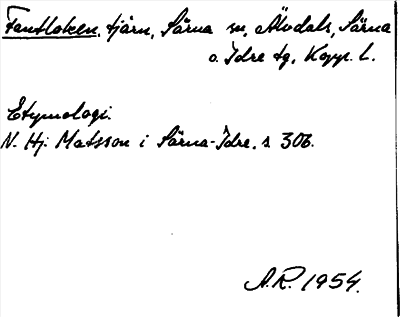 Fantloken, tjärn, Särna sn, Älvdals, Särna
o. Idre tg, Kopp. l.
Etymologi.
N. Hj. Matsson i Särna-Idre. s. 306.
A.R. 1954.